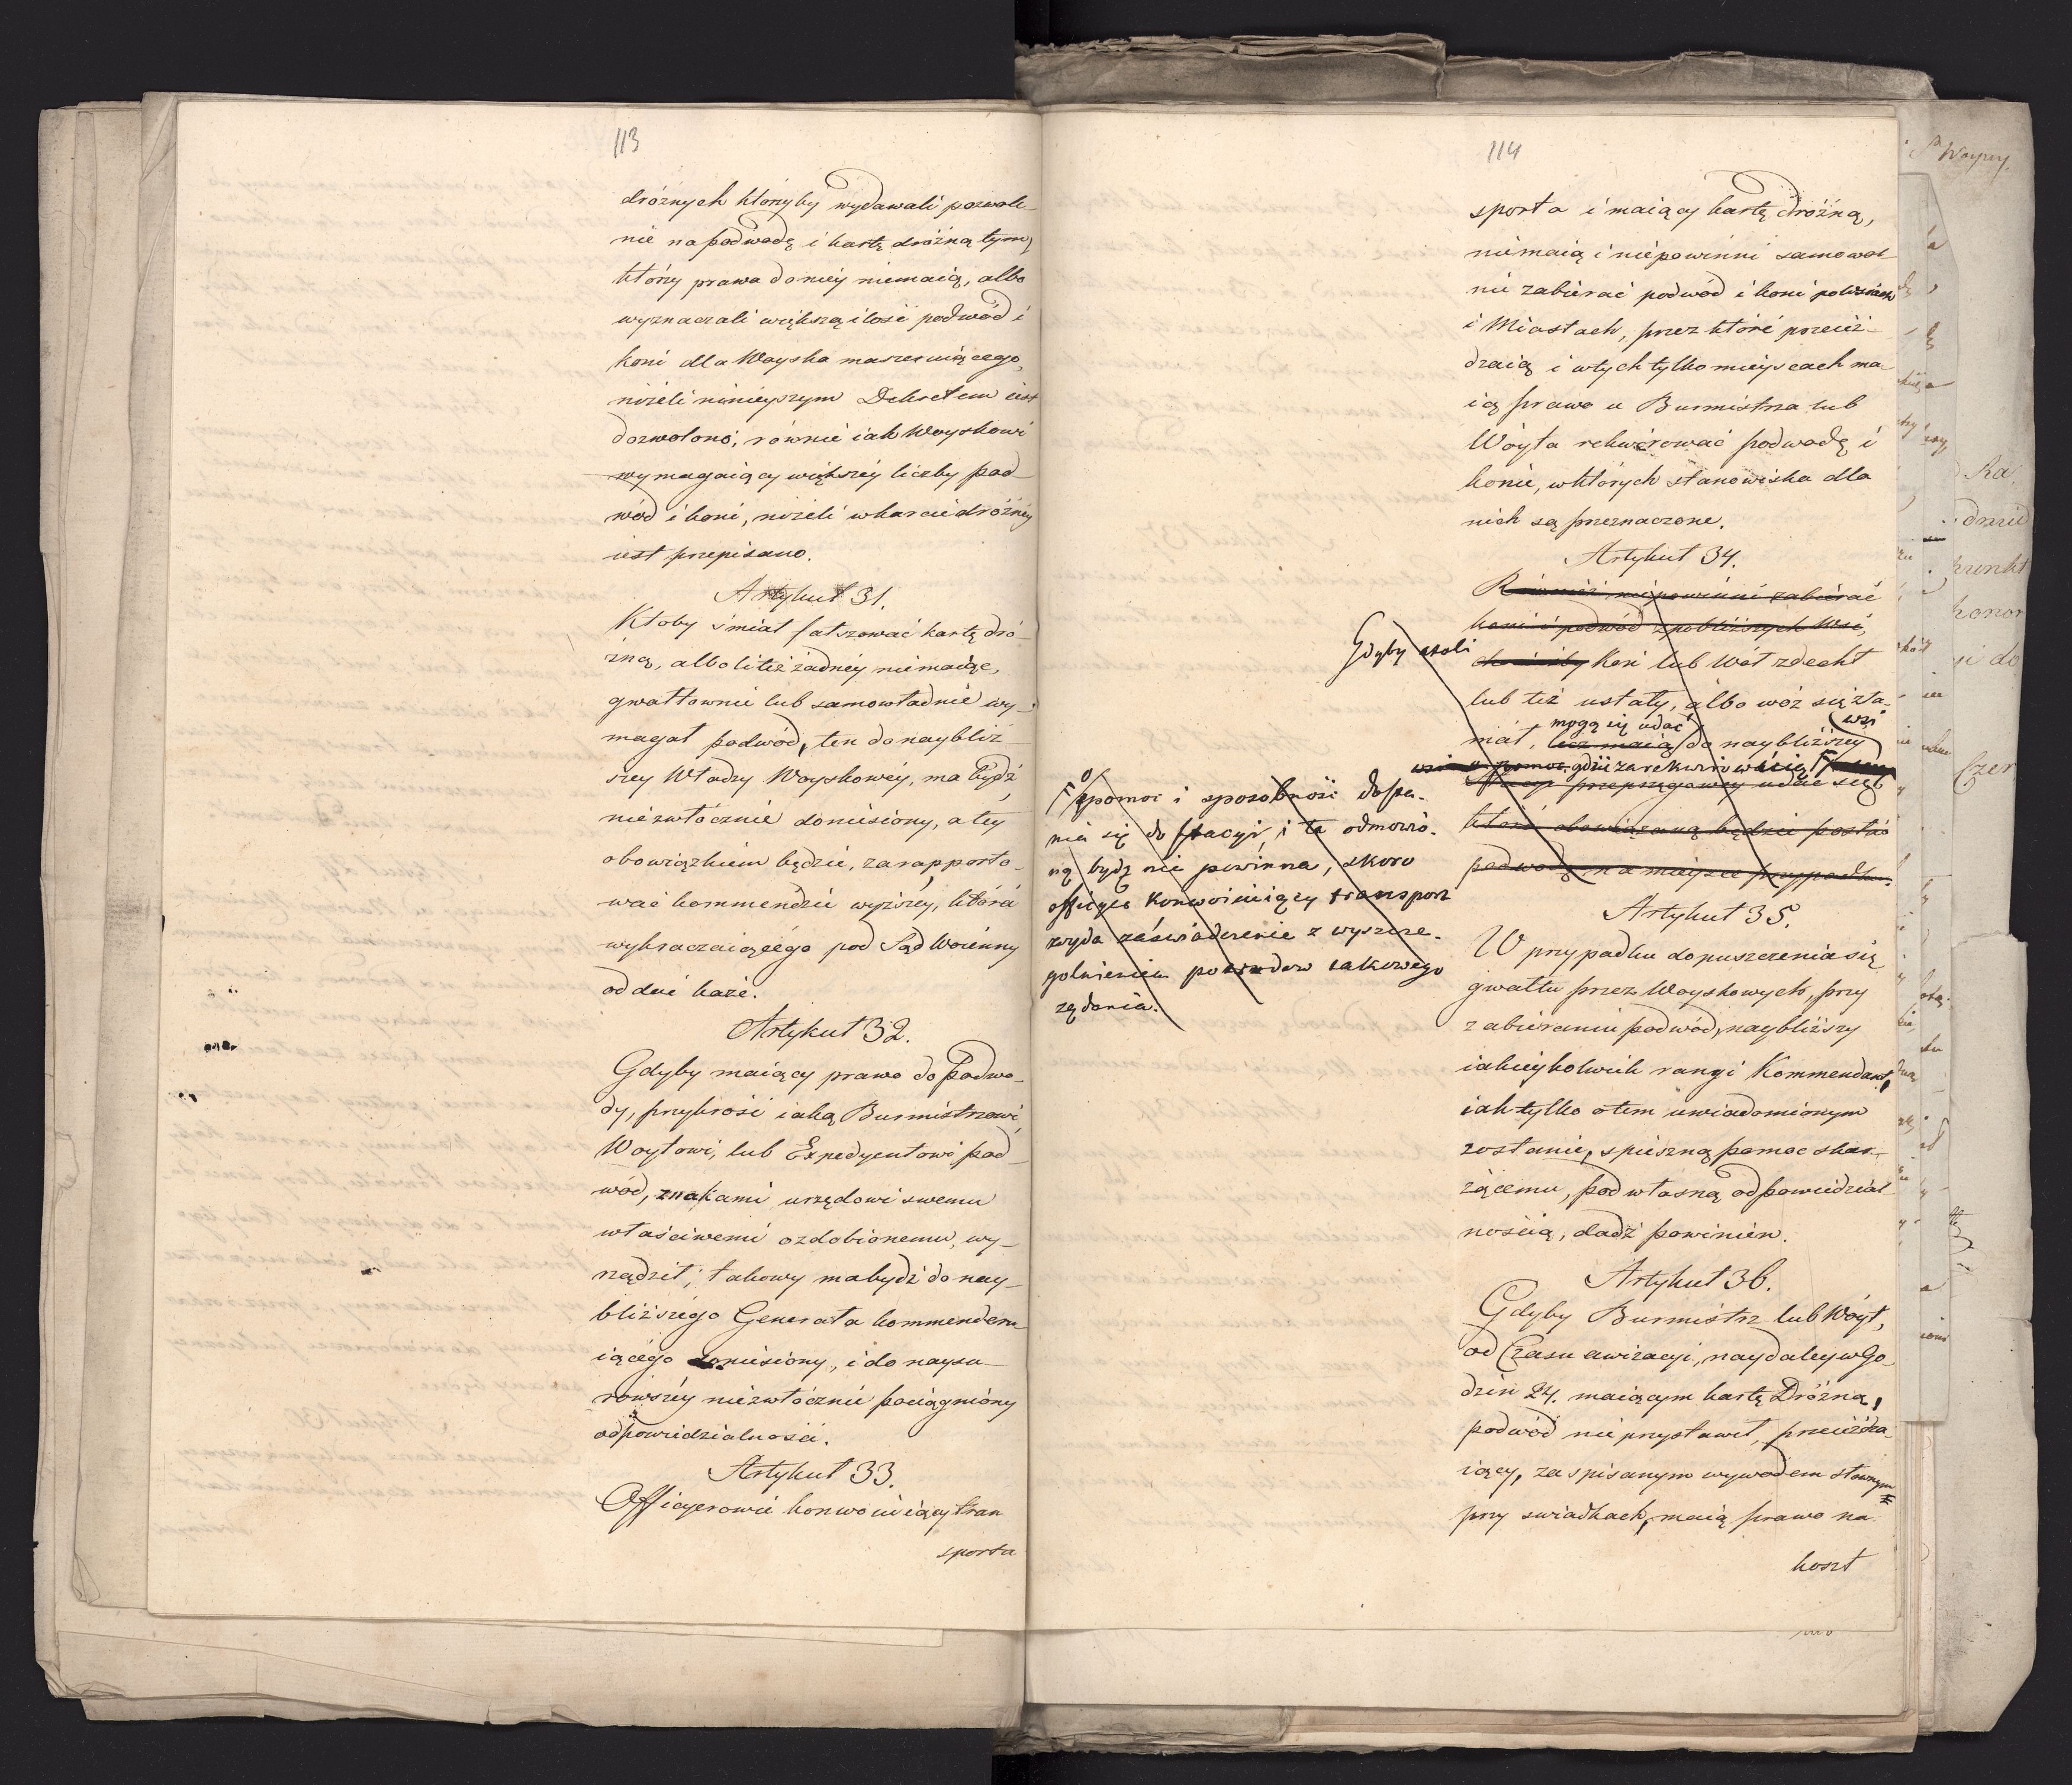 113
dróżnych którzyby wydawali pozwole-
nie na podwodę i kartę dróżną tym,
którzy prawa do niey niemaią, albo
wyznaczali większą ilość podwód i
koni dla Woyska maszeruiącego,
niżeli ninieyszym Dekretem iest
dozwolono, równie iak Woyskowi
wymagaiący większey liczby pod-
wód i koni, niżeli w karcie dróżney
iest przepisano.
Artykuł 31.
Ktoby śmiał fałszować kartę dró-
żną, albo li też żadney niemaiąc,
gwałtownie lub samowładnie wy-
magał podwód, ten do naybliż-
szey Władzy Woyskowéy, ma bydź
niezwłócznie doniesiony, a tey
obowiązkiem będzie, zarapporto-
wać kommendzie wyższéy, która
wykraczaiącego pod Sąd Woienny
oddać każe.
Artykuł 32.
Gdyby maiący prawo do Podwo-
dy, przykrość iaką Burmistrzowi,
Woytowi, lub Expedyentowi pod-
wód, znakami urzędowi swemu
właściwemi ozdobionemu, wy-
rządził; takowy ma bydź do nay-
bliższego Generała kommenderu-
iącego doniesiony, i do naysu-
rowszéy niezwłócznie pociągniony
odpowiedzialności.
Artykuł 33.
Officyerowie konwoiuiący tran
sporta
114
sporta i maiący kartę dróżną,
niemaią i niepowinni samowol-
nie zabierać podwód i koni po wsiach
i Miastach, przez które przeież-
dzaią i w tych tylko mieyscach ma-
ią prawo u Burmistrza lub
Wóyta rekwirować podwodę i
konie, w których stanowiska dla
nich są przeznaczone.
Artykuł 34.
Również niepowinni zabierać
koni i podwód z pobliższych Wsi,
Gdyby
Koń lub Wół zdechł
lub też ustały, albo wóz się zła-
mogą się udać wsi
mał, lecz maią do naybliższey
pomoc gdzie zarekwirować
przeprzęgowey udać się
która obowiązaną będzie posłać
podwodę na mieysce przypadku.
pomoc i sposobność dosta-
nia się do stacyi, i ta odmowio-
ną bydź nie powinna, skoro
officyer konwoiuiący transport
wyda zaświadczenie z wyszcze-
gólnieniem powodow takowego
żądania.
Artykuł 35.
W przypadku dopuszczenia się
gwałtu przez Woyskowych, przy
zabieraniu podwód, naybliższy
iakieykolwiek rangi Kommendant,
iak tylko o tem uwiadomionym
zostanie, spieszną pomoc skar-
żącemu, pod własną odpowiedzial-
nością, dadź powinien.
Artykuł 36.
Gdyby Burmistrz lub Wóyt,
od Czasu awizacyi, naydaley w Go-
dzin 24. maiącym kartę Dróżną,
podwód nie przystawił, przeieżdza-
iący, za spisanym wywodem słownym
przy swiadkach, maią prawo na
koszt